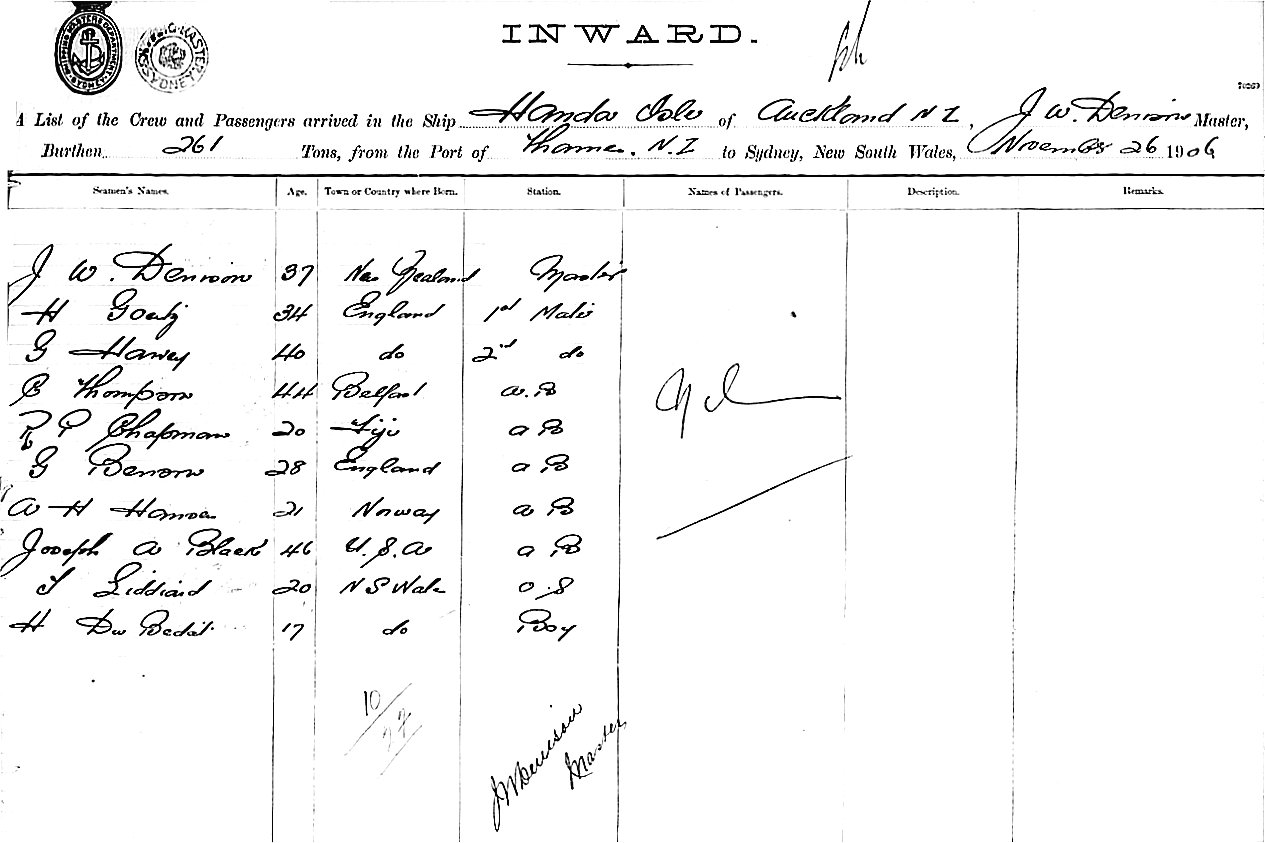 INWARD.
A List of the Crew and Passengers arrived in the Ship Handa Isle of Auckland N Z, J W. Denison Master,
Burthen 261 Tons, from the Port of Thames. N.Z to Sydney, New South Wales, November 26 1906
Seamen's Names. Age. Town or Country where Born. Station. Names of Passengers. Description. Remarks.
J W. Denison 37 New Zealand Master
H 34 England 1st Mate
G Harvey 40 do 2nd do
C Thompson 44 Belfast A.B
R P Chapman 20 Fiji A B
G Benson 28 England A B
A H Hansen 21 Norway A B
Joseph A Black 46 U.S.A A B
T Liddiard 20 N S Wales O.S
H 17 do Boy
Nil
10
JW Denison
Master